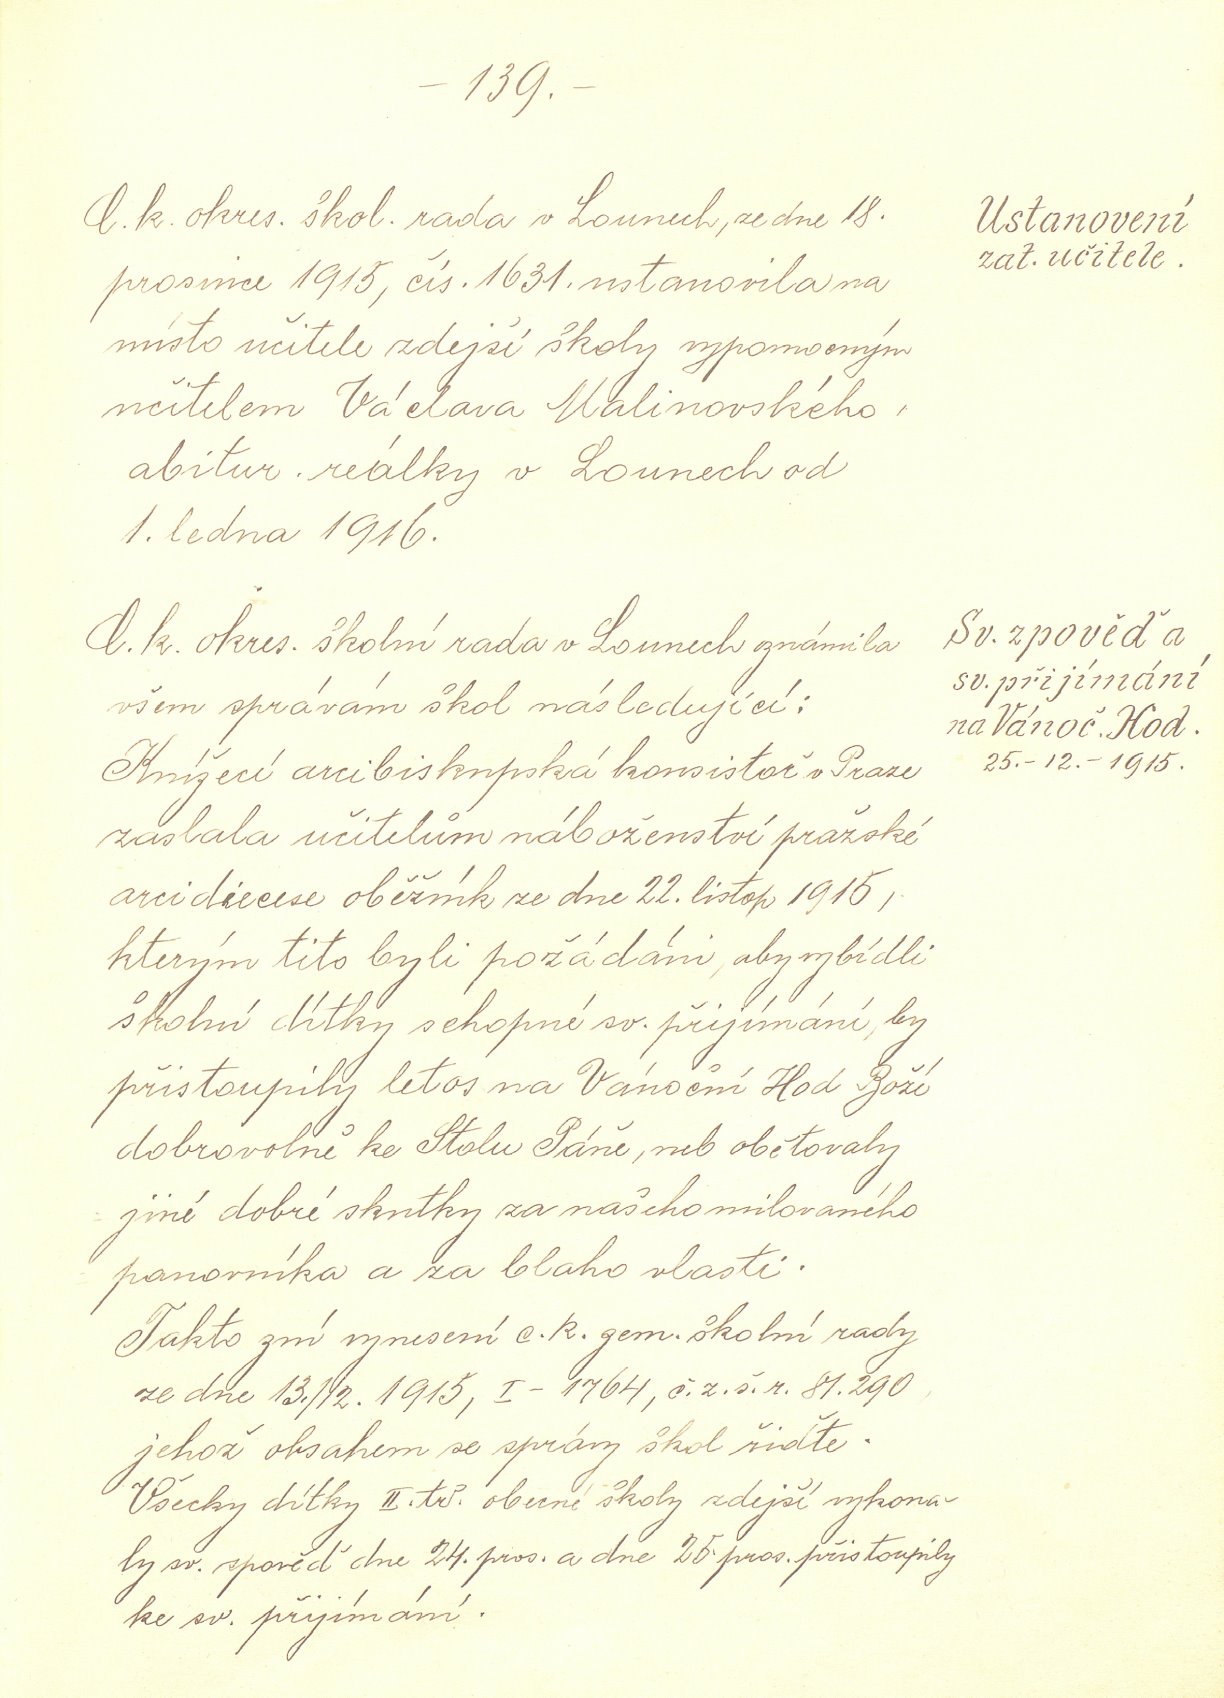 – 139. –
C. k. okres. škol. rada v Lounech, ze dne 18.
prosince 1915, čís. 1631. ustanovila na
místo učitele zdejší školy výpomocným
učitelem Václava Malinovského,
abitur. reálky v Lounech od
1. ledna 1916.
Ustanovení
zat. učitele.
C. k. okres. školní rada v Lounech známila
všem správám škol následující:
Knížecí arcibiskupská konsistoř v Praze
zaslala učitelům náboženství pražské
arcidiecese oběžník ze dne 22. listop 1915,
kterým tito byli požádáni, aby vybídli
školní dítky schopné sv. přijímání, by
přistoupily letos na Vánoční Hod Boží
dobrovolně ke Stolu Páně, neb obětovaly
jiné dobré skutky za našeho milovaného
panovníka a za blaho vlasti.
Takto zní vynesení c. k. zem. školní rady
ze dne 13./12. 1915, I – 1764, č. z. š. r. 81.290,
jehož obsahem se správy škol řiďte.
Všecky dítky II. tř. obecné školy zdejší vykona-
ly sv. spověď dne 24. pros. a dne 25 pros. přistoupily
ke sv. přijímání.
Sv. zpověď a
sv. přijímání
na Vánoč. Hod.
25. – 12. – 1915.